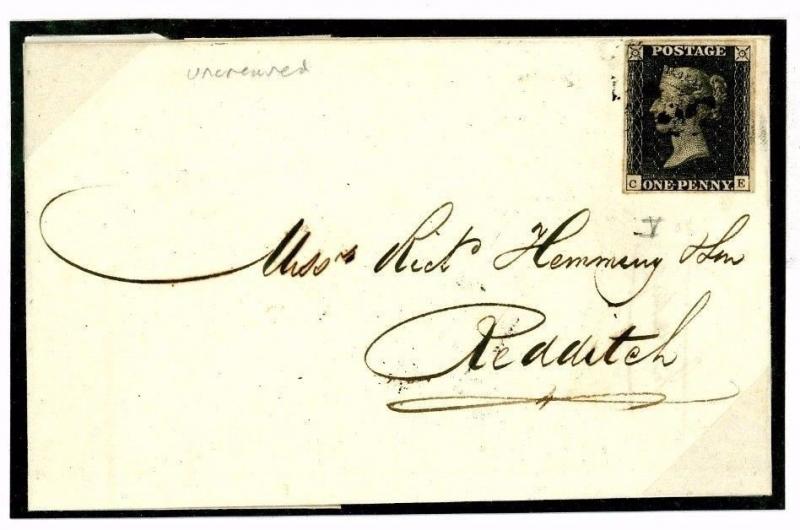 uncreased
POSTAGE
C ONE PENNY E
V
Messrs Richd Hemming & Son
Redditch